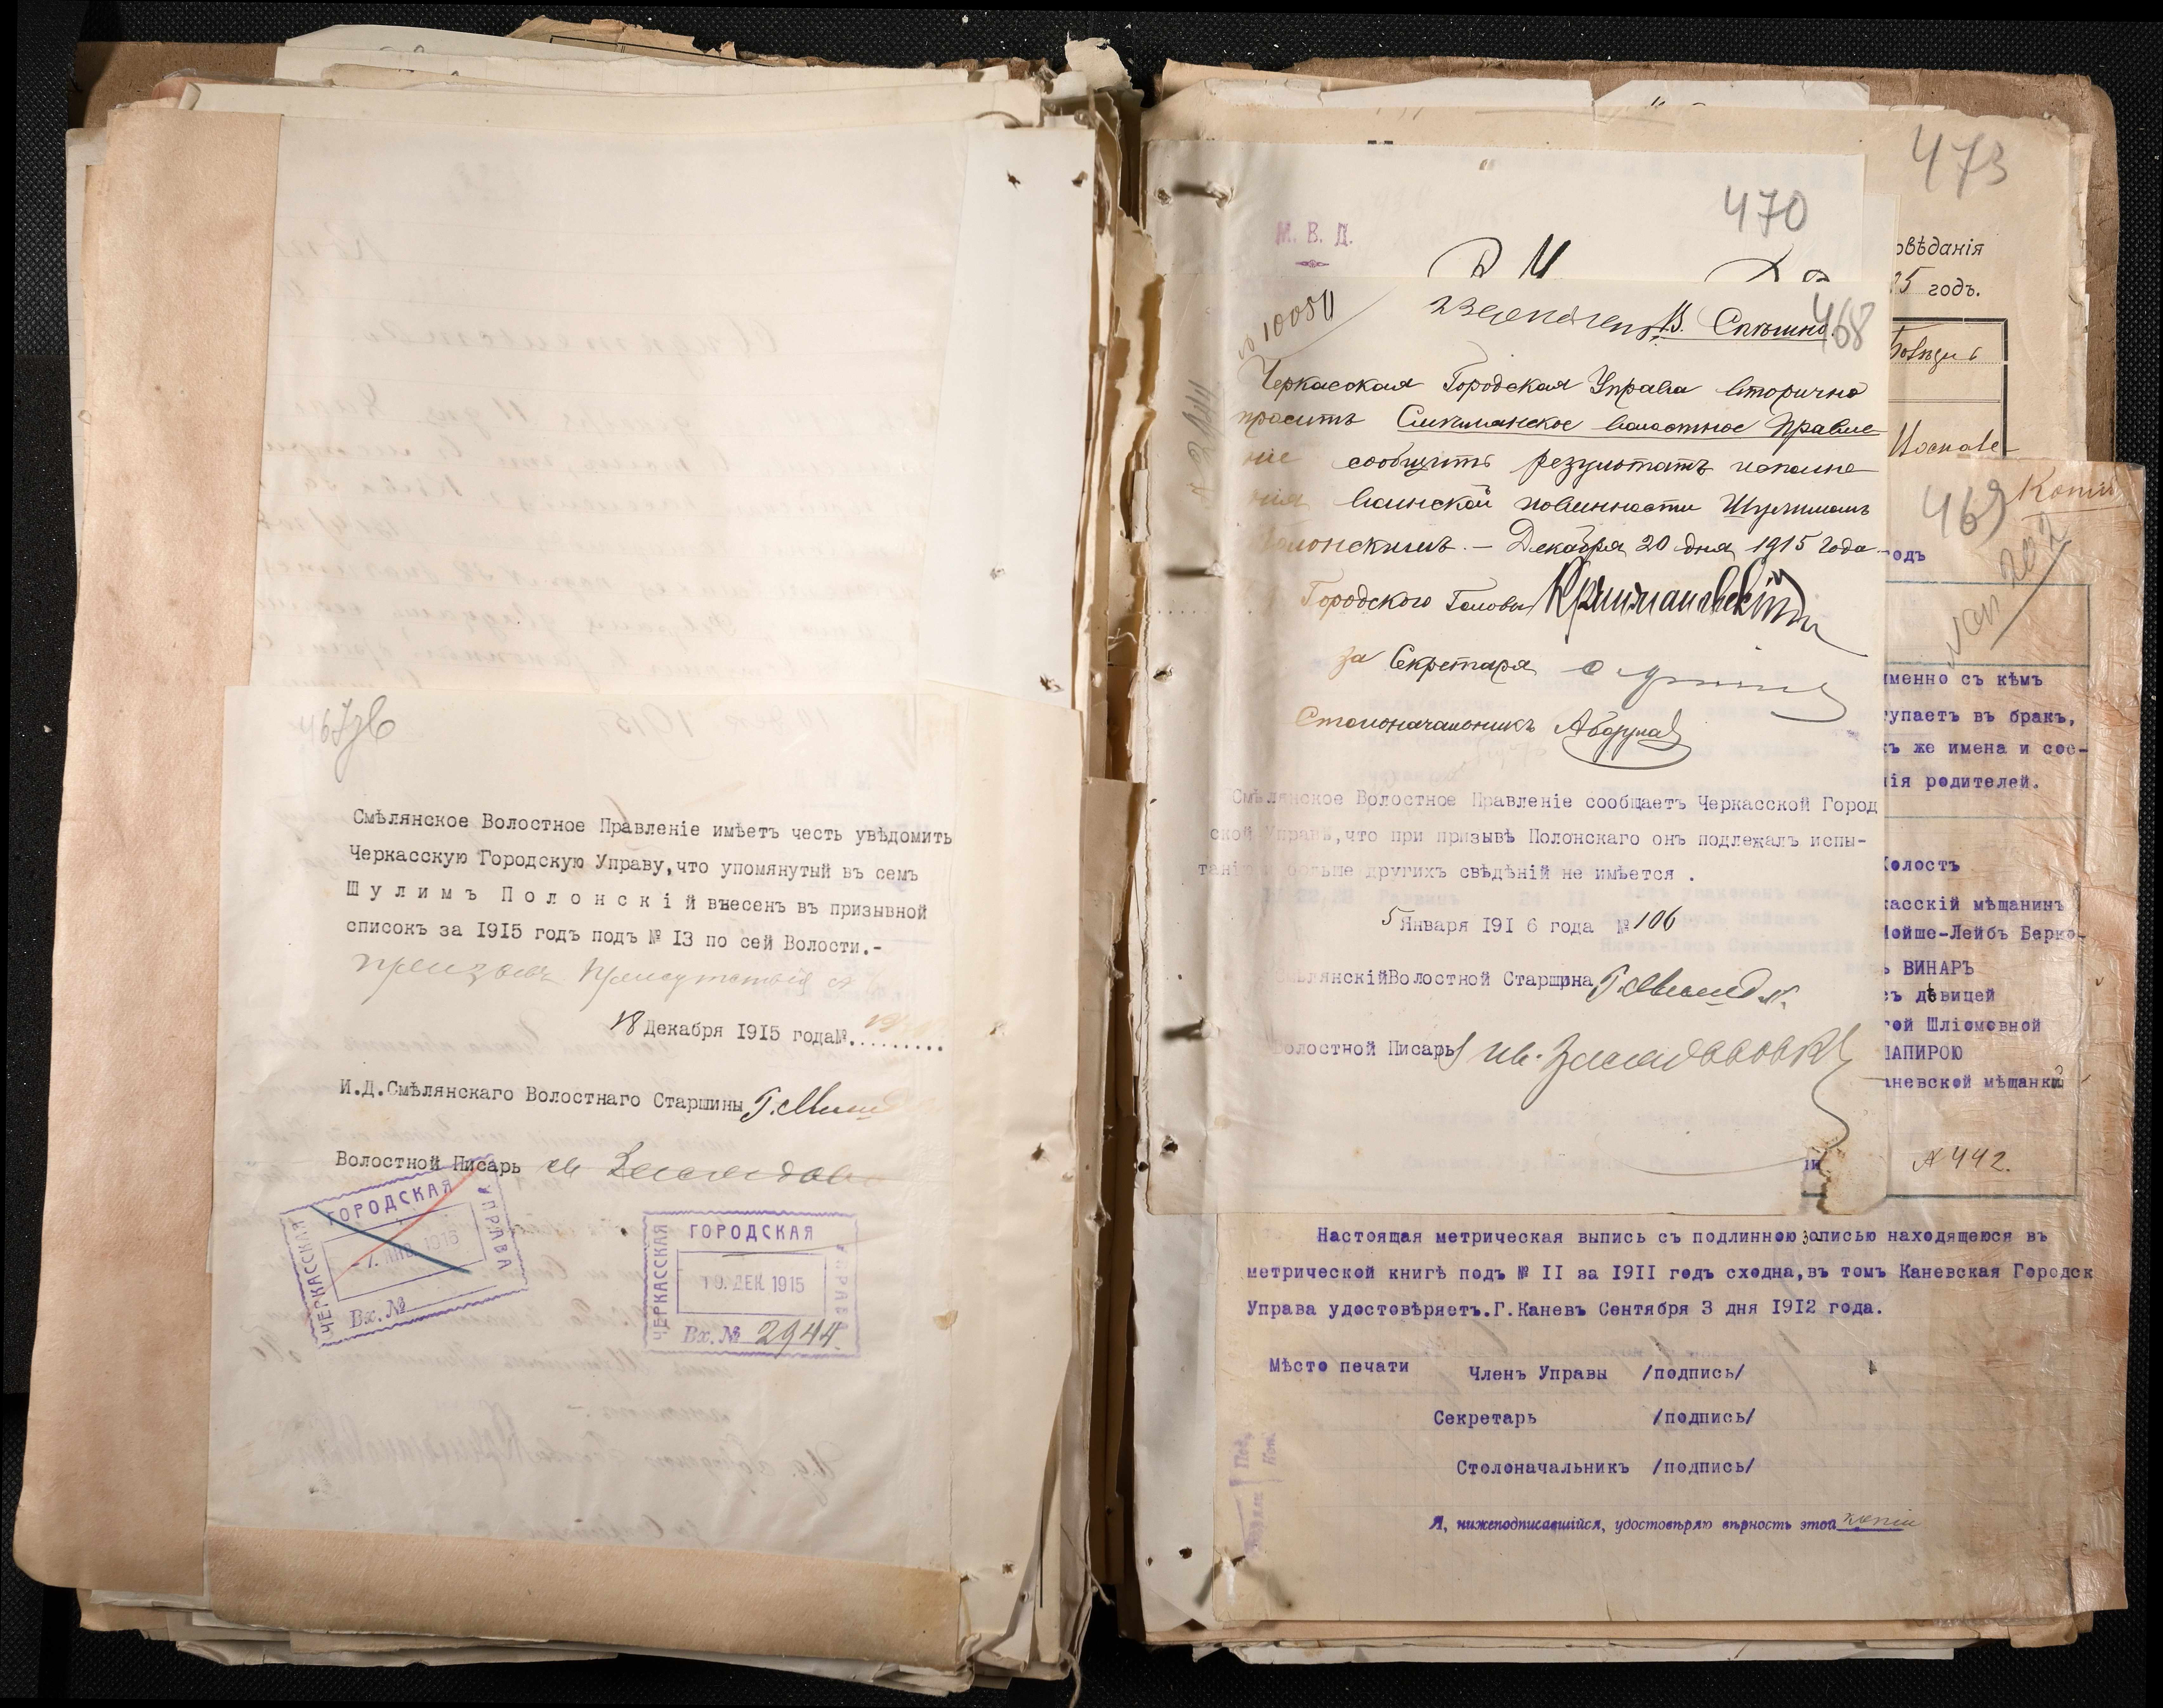 467об
Смѣлянское Волостное Правленіе имѣетъ честь увѣдомить
Черкасскую Городскую Управу,что упомянутый въ семъ
Шулимъ Полонскій внесенъ въ призывной
списокъ за 1915 годъ подъ № 13 по сей Волости.-
18 Декабря 1915 года№.........
И.Д.Смѣлянскаго Волостнаго Старшины
Волостной Писарь
ЧЕРКАССКАЯ ГОРОДСКАЯ УПРАВА
-7. ЯНВ 1916
Вх. №
ЧЕРКАССКАЯ ГОРОДСКАЯ УПРАВА
19. ДЕК 1915
Вх. № 2944
473
470
М. В. Д.
468
№ 10050
В. Спѣшно.
Черкасская Городская Управа вторично
проситъ Смѣлянское волостное Правле-
ніе сообщить результатъ исполне-
нія воинской повинности Шулимомъ
Полонскимъ. - Декабря 20 дня 1915 года.
Городского Головы
за Секретаря
Столоначальникъ
Смѣлянское Волостное Правленіе сообщаетъ Черкасской Город
ской Управѣ,что при призывѣ Полонскаго онъ подлежалъ испы-
танію и больше другихъ свѣдѣній не имѣется .
5 Января 1916 года № 106
Смѣлянскій Волостной Старшина
Волостной Писарь
овѣданія
15 годъ.
469
Копія
одъ
именно съ кѣмъ
тупаетъ въ бракъ,
къ же имена и сос-
нія родителей.
Холостъ
касскій мѣщанинъ
Мойше-Лейбъ Берко-
ъ ВИНАРЪ
съ дѣвицей
гой Шліомовной
ШАПИРОЮ
аневской мѣщанкой
№ 442.
Настоящая метрическая выпись съ подлинною записью находящеюся въ
метрической книгѣ подъ № II за 1911 годъ сходна,въ томъ Каневская Городск
Управа удостовѣряетъ.Г.Каневъ Сентября 3 дня 1912 года.
Мѣсто печати Членъ Управы /подпись/
Секретарь /подпись/
Столоначальникъ /подпись/
Я, нижеподписавшійся, удостовѣряю вѣрность этой копіи